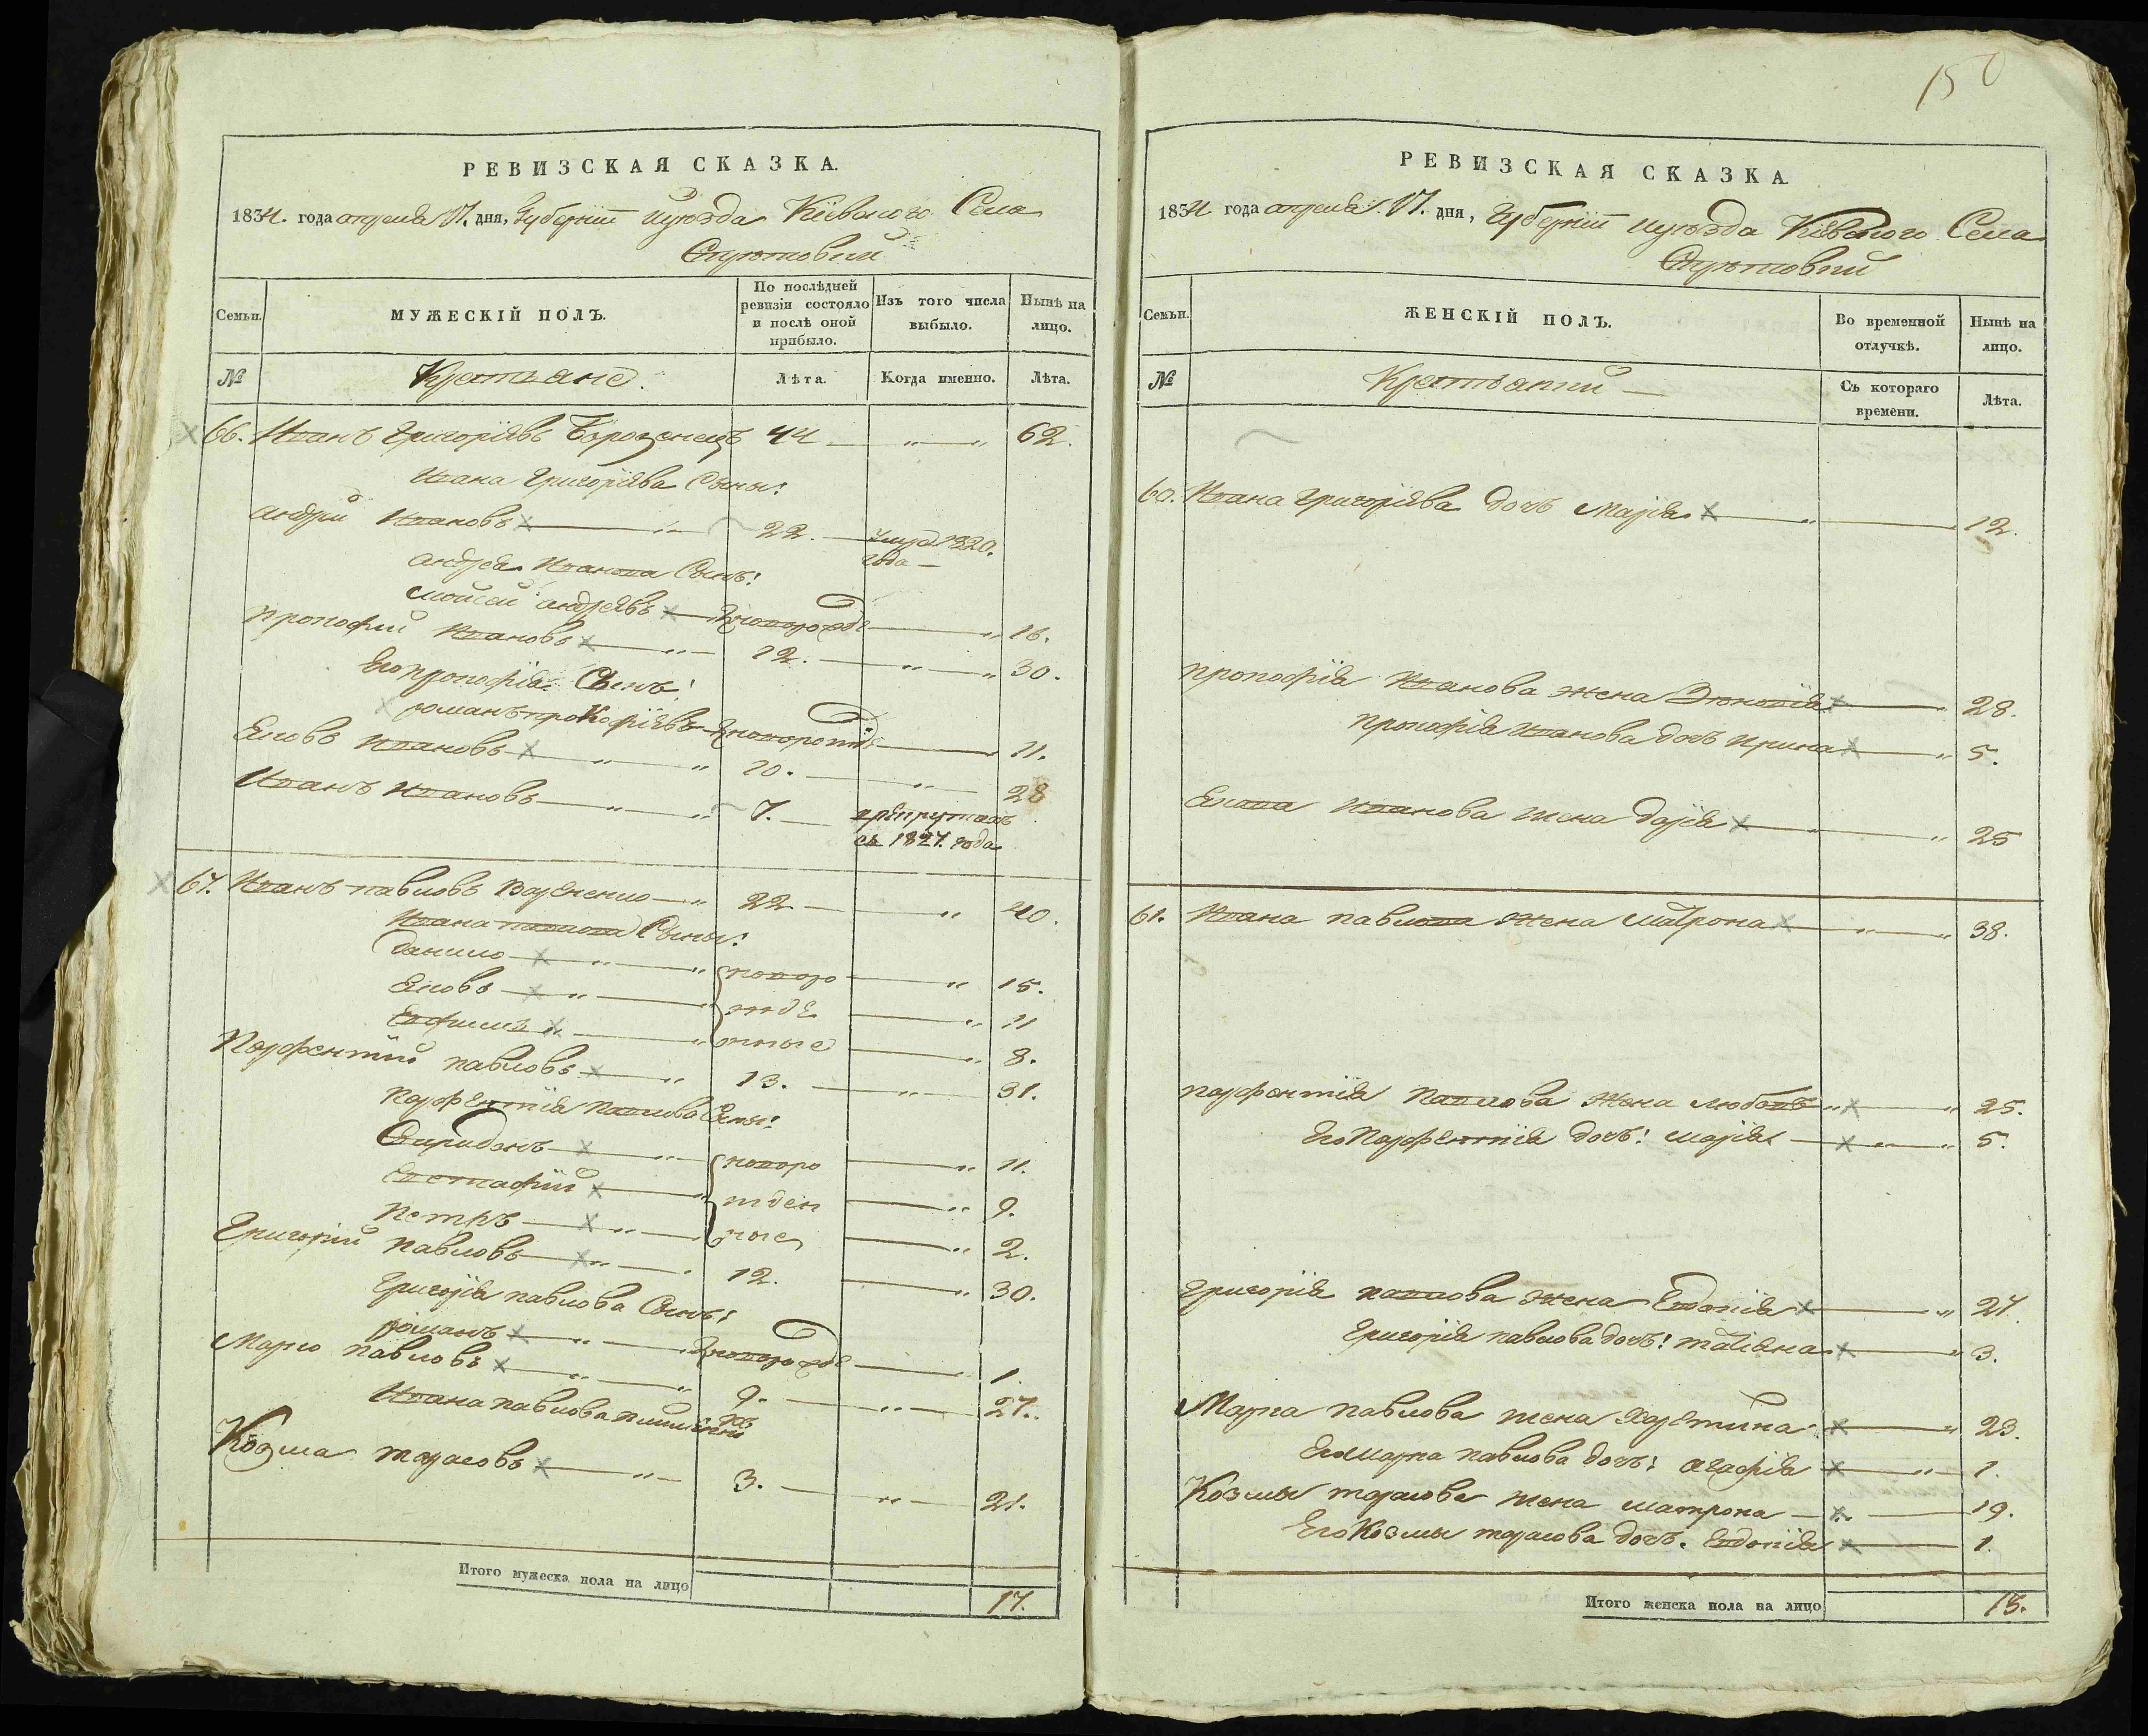 РЕВИЗСКАЯ СКАЗКА.
1834. года апреля 17. дня, Губернїи и уѣзда Кїевского Села
Семьи.
МУЖЕСКІЙ ПОЛЪ.
По послѣдней ревизіи состояло и послѣ оной прибыло.
Изъ того числа выбыло.
Нынѣ на лицо.
№
Крестьяне.
Лѣта.
Когда именно.
Лѣта.
66. Иванъ Григорїевъ 44 62.
Ивана Григорїева Сыны:
андрей Ивановъ 22. Умре 1820. года
андрея Иванова Сынъ:
Мойсей андреевъ новорожде 16.
прокофий Ивановъ 12. 30.
Его прокофїя Сынъ:
романъ прокофїевъ новорожде 11.
Яковъ Ивановъ 10. 28
Иванъ Ивановъ 7. врекрутахъ
съ 1827. года
67. Иванъ павловъ 22. 40.
Ивана павлова Сыны:
данило новоро 15.
Яковъ жде 11
Евфимъ нные 8.
Парфентий павловъ 13. 31.
Парфентїя павлова Сыны:
Свиридонъ новоро 11.
Евстафий жден 9.
Петръ ные 2.
Григорий павловъ 12. 30.
Григорїя павлова Сынъ:
романъ новорожде 1
Марко павловъ 9. 27.
Ивана павлова племянникъ
Козма тарасовъ 3. 21.
Итого мужеска пола на лицо 17.
150
РЕВИЗСКАЯ СКАЗКА
1834 года апреля. 17. дня, Губернїи и уѣзда Кїевского Села
Семьи.
ЖЕНСКІЙ ПОЛЪ.
Во временной отлучкѣ.
Нынѣ на лицо.
№
Крестьянки
Съ котораго времени.
Лѣта.
60. Ивана Григорїева дочъ Марїя 12.
прокофїя Иванова жена 28.
прокофїя Иванова дочъ Ирина 5.
Якова Иванова жена дарїя 25
61. Ивана павлова жена Матрона 38.
парфентїя Павлова жена любовъ 25.
Его Парфентїя дочъ: марїя 5.
Григорїя павлова жена Евдокїя 27.
Григорїя павлова дочъ: татїяна 3.
Марка павлова жена Харетина 23.
Его Марка павлова дочъ: агафїя 1.
Козмы тарасова жена матрона 19.
Его Козмы тарасова дочъ. Евдокїя 1.
Итого женска пола на лицо 13.